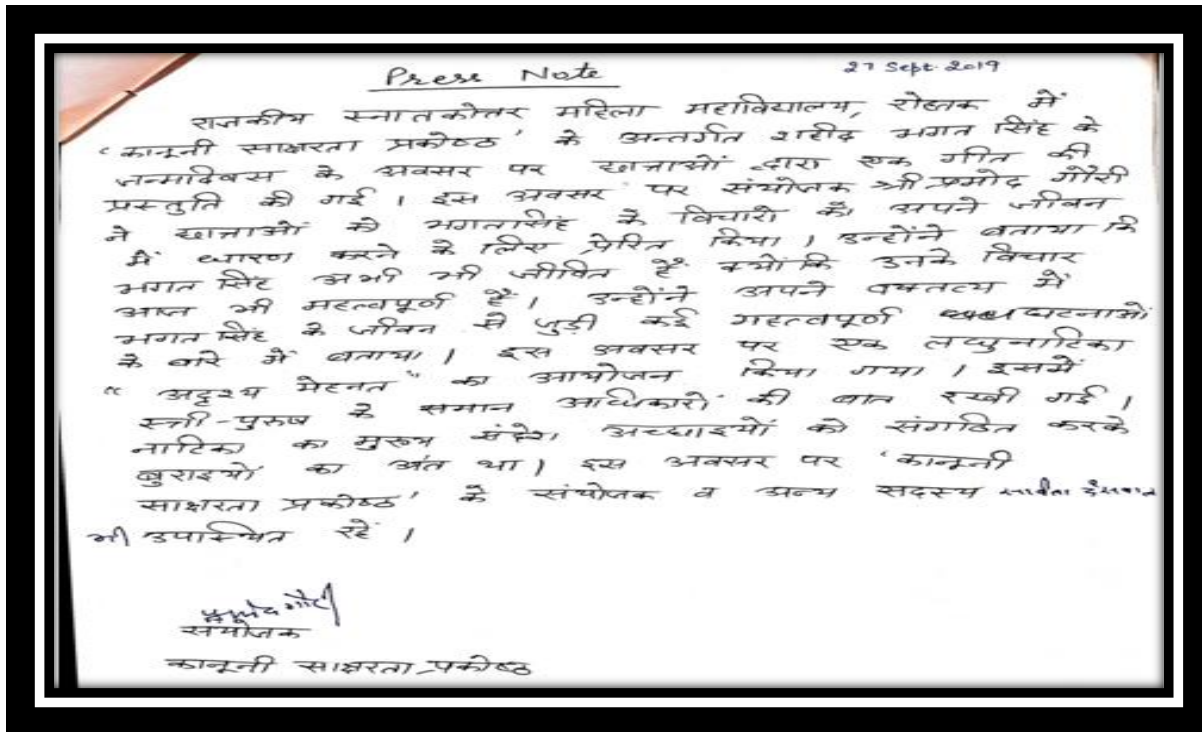 Press Note
27 Sept. 2019
राजकीय स्नातकोत्तर महिला महाविद्यालय, रोहतक में
'कानूनी साक्षरता प्रकोष्ठ' के अन्तर्गत शहीद भगत सिंह के
जन्मदिवस के अवसर पर छात्राओं द्वारा एक गीत की
प्रस्तुति की गई । इस अवसर पर संयोजक श्री प्रमोद गौरी
ने छात्राओं को भगतसिंह के विचारों को अपने जीवन
में धारण करने के लिए प्रेरित किया । उन्होंने बताया कि
भगत सिंह अभी भी जीवित हैं क्योंकि उनके विचार
आज भी महत्वपूर्ण हैं । उन्होंने अपने वक्तव्य में
भगत सिंह के जीवन से जुड़ी कई महत्वपूर्ण घटनाओं
के बारे में बताया । इस अवसर पर एक लघुनाटिका
" अदृश्य मेहनत " का आयोजन किया गया । इसमें
स्त्री-पुरुष के समान अधिकारों की बात रखी गई ।
नाटिका का मुख्य संदेश अच्छाइयों को संगठित करके
बुराइयों का अंत था । इस अवसर पर 'कानूनी
साक्षरता प्रकोष्ठ' के संयोजक व अन्य सदस्य
भी उपस्थित रहें ।
संयोजक
कानूनी साक्षरता प्रकोष्ठ